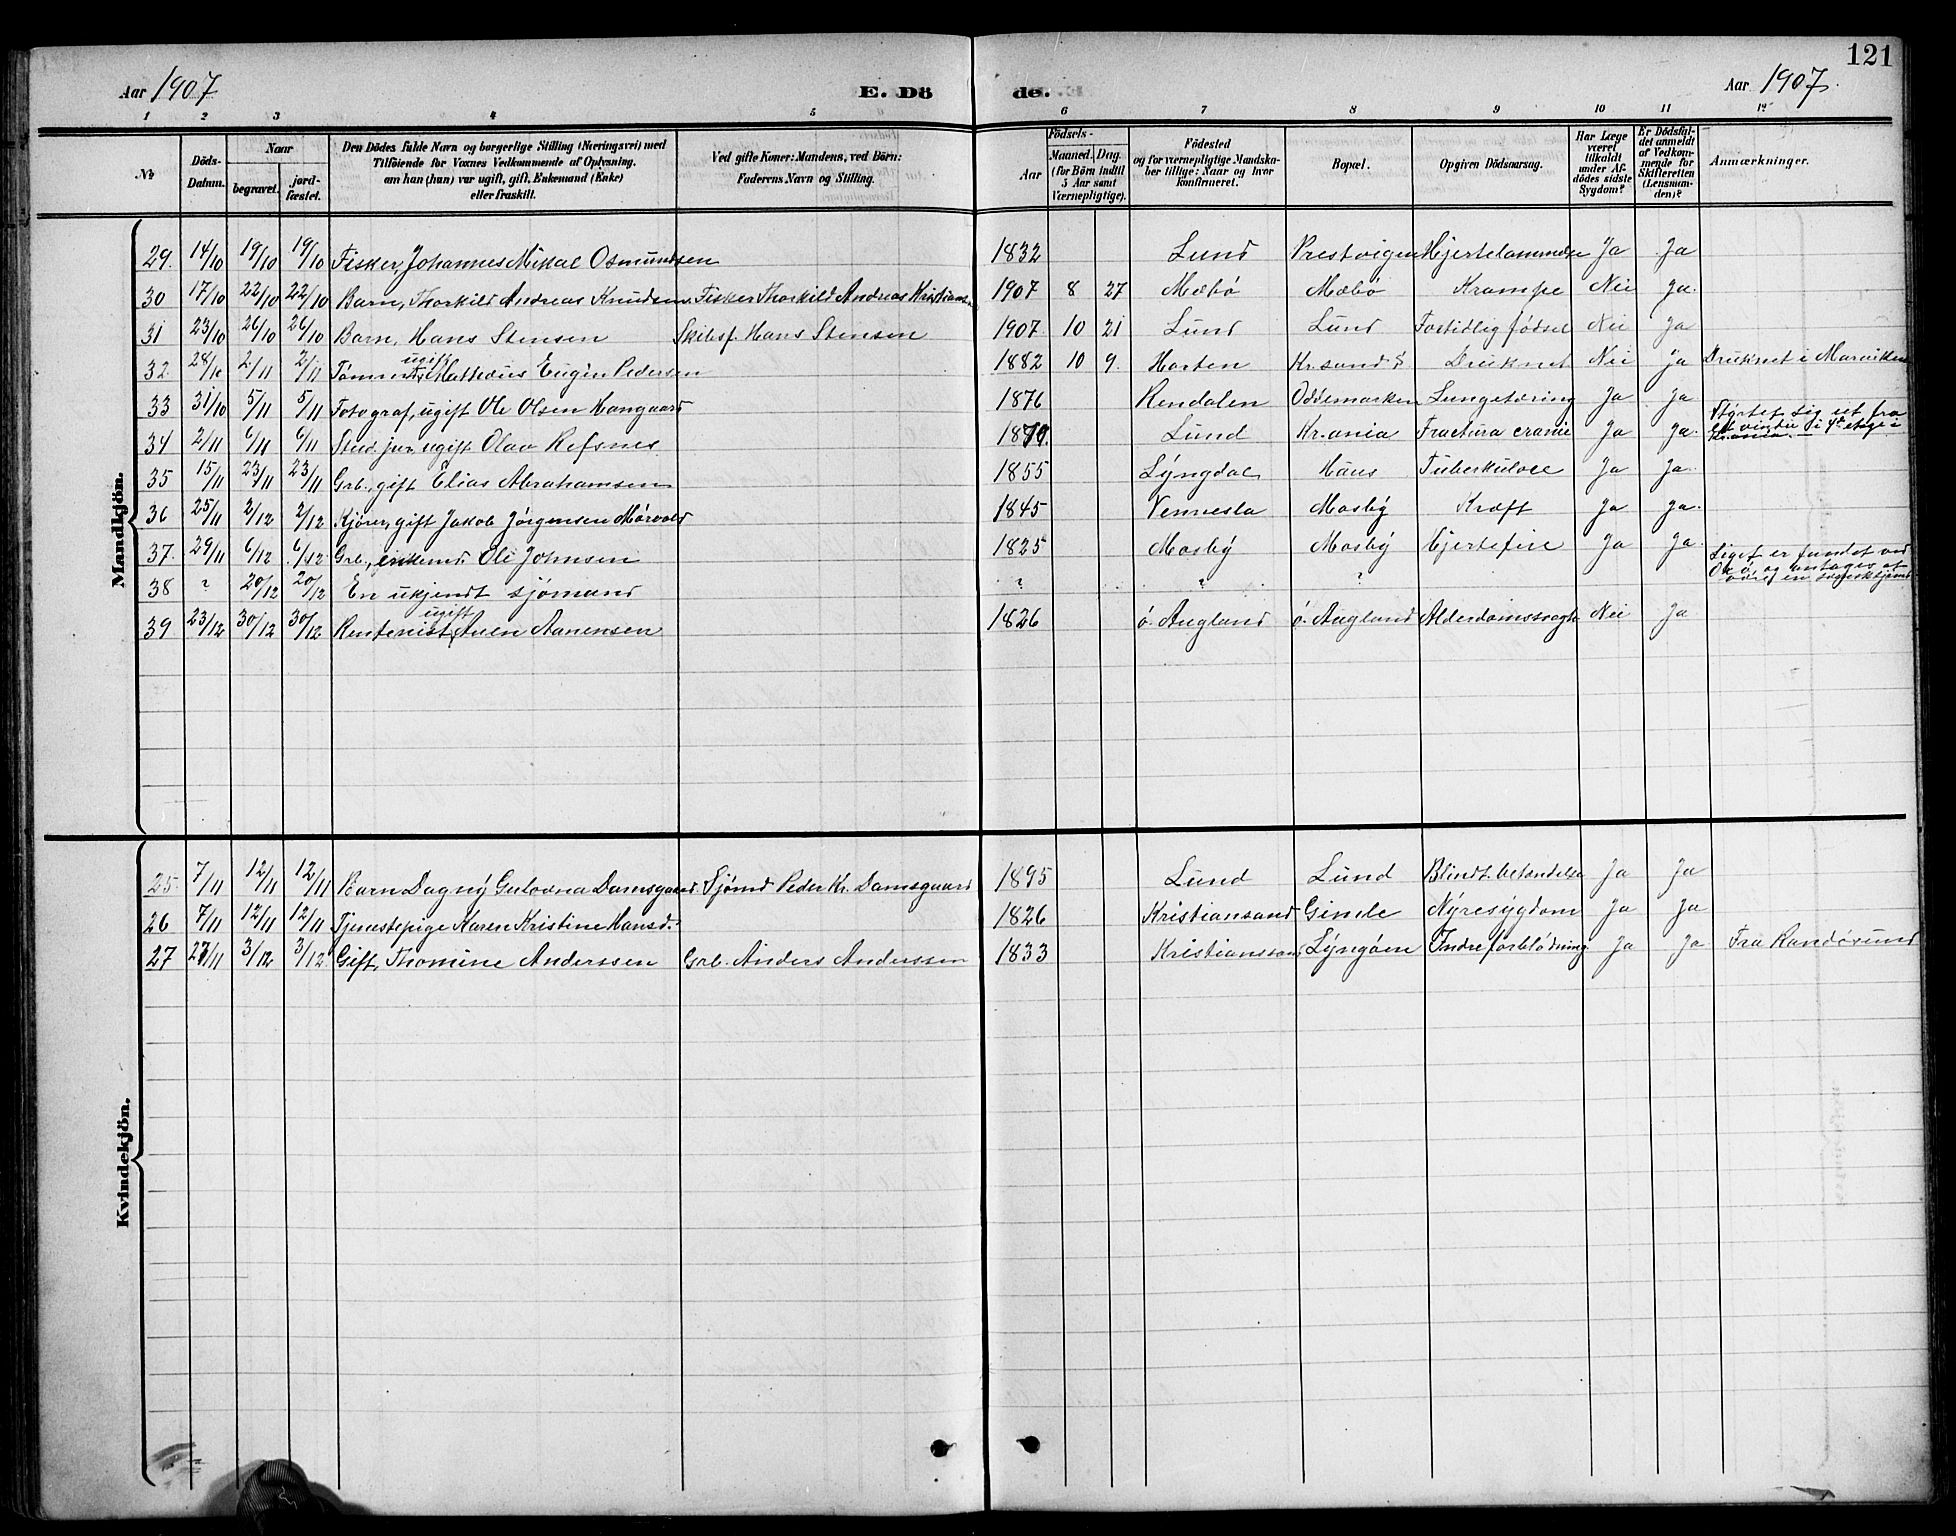 121
Aar 1907
E. Dö
de.
Aar 1907.
1 2 3 4 5 6 7 8 9 10 11 12
№
Döds-Datum.
Naar
begravet.
jord-fæstet.
Den Dödes fulde Navn og borgerlige Stilling (Næringsvei) med
Tilföiende for Voxnes Vedkommende af Oplysning,
om han (hun) var ugift, gift, Enkemand (Enke)
eller fraskilt.
Ved gifte Koner: Mandens, ved Börn:
Faderens Navn og Stilling.
Födsels-
Aar
Maaned. Dag.
(for Börn indtil
5 Aar samt
Værnepligtige).
Födested
og for værnepligtige Mandska-
ber tillige: Naar og hvor
konfirmeret.
Bopæl.
Opgiven Dödsaarsag.
Har Læge
været
tilkaldt
under Af-
dödes sidste
Sygdom?
Er Dödsfal-
det anmeldt
af Vedkom-
mende for
Skifteretten
(Lensman-
den)?
Anmærkninger.
Mandkjön.
29. 14/10 19/10 19/10 Fisker, Johannes Mikal Osmundsen 1832 Lund Prestvigen Hjertelammelse Ja Ja
30 17/10 22/10 22/10 Barn, Thorkild Andreas Knudsen Fisker Thorkild Andreas Kristians. 1907 8 27 Mæbö Mæbö Krampe Nei ja.
31 23/10 26/10 26/10 Barn, Hans Stensen Skibsf. Hans Stensen 1907 10 21 Lund Lund Fortidlig fødsel Nei Ja
32. 28/10 2/11 2/11 Tømmerm., ugift Mathæus Eugen Pedersen 1882 10 9. Horten Kr.sand S Druknet Nei ja Druknet i Marviken
33 31/10 5/11 5/11 Fotograf, ugift Ole Olsen Hangaard 1876 Rendalen Oddemarken Lungetæring Ja ja
34 2/11 6/11 6/11 Stud. jur. ugift Olav Refsnes Lund Kr.ania Fractura cranie Ja ja. Styrtet sig ut fra et vindu i 4de etage i Kr.ania.
35 15/11 23/11 23/11 Grb., gift Elias Abrahamsen 1855 Lyngdal Tuberkulose Ja Ja.
36 25/11 2/12 2/12 Kjører, gift Jakob Jörgensen Mörvold 1845 Vennesla Mosby Kræft Ja ja.
37. 29/11 6/12 6/12 Grb., enkemd. Ole Johnsen 1825 Mosby Mosby Hjertefeil Ja Ja.
38 ? 20/12 20/12 En ukjendt sjömand ? ? ? Liget er fundet ved og antages at være en svensk sjömd.
39 23/12 30/12 30/12 Rentenist, ugift Aven Aanensen 1826 ö. Augland ö. Augland Alderdomssvagh. Nei Ja
Kvindekjön.
25. 7/11 12/11 12/11 Barn Dagny Gulovna Damsgaard. Sjömd Peder Kr. Damsgaard 1895 Lund Lund Blindt. betændelse Ja Ja
26 7/11 12/11 12/11 Tjenestepige Karen Kristine Hansd. 1826 Kristiansand Gimle Nyresygdom Ja Ja
27 27/11 3/12 3/12. Gift, Thomine Anderssen Grb. Anders Anderssen 1833 Kristianssand Lyngöen Indre forblödning Ja Ja Fra Randösund